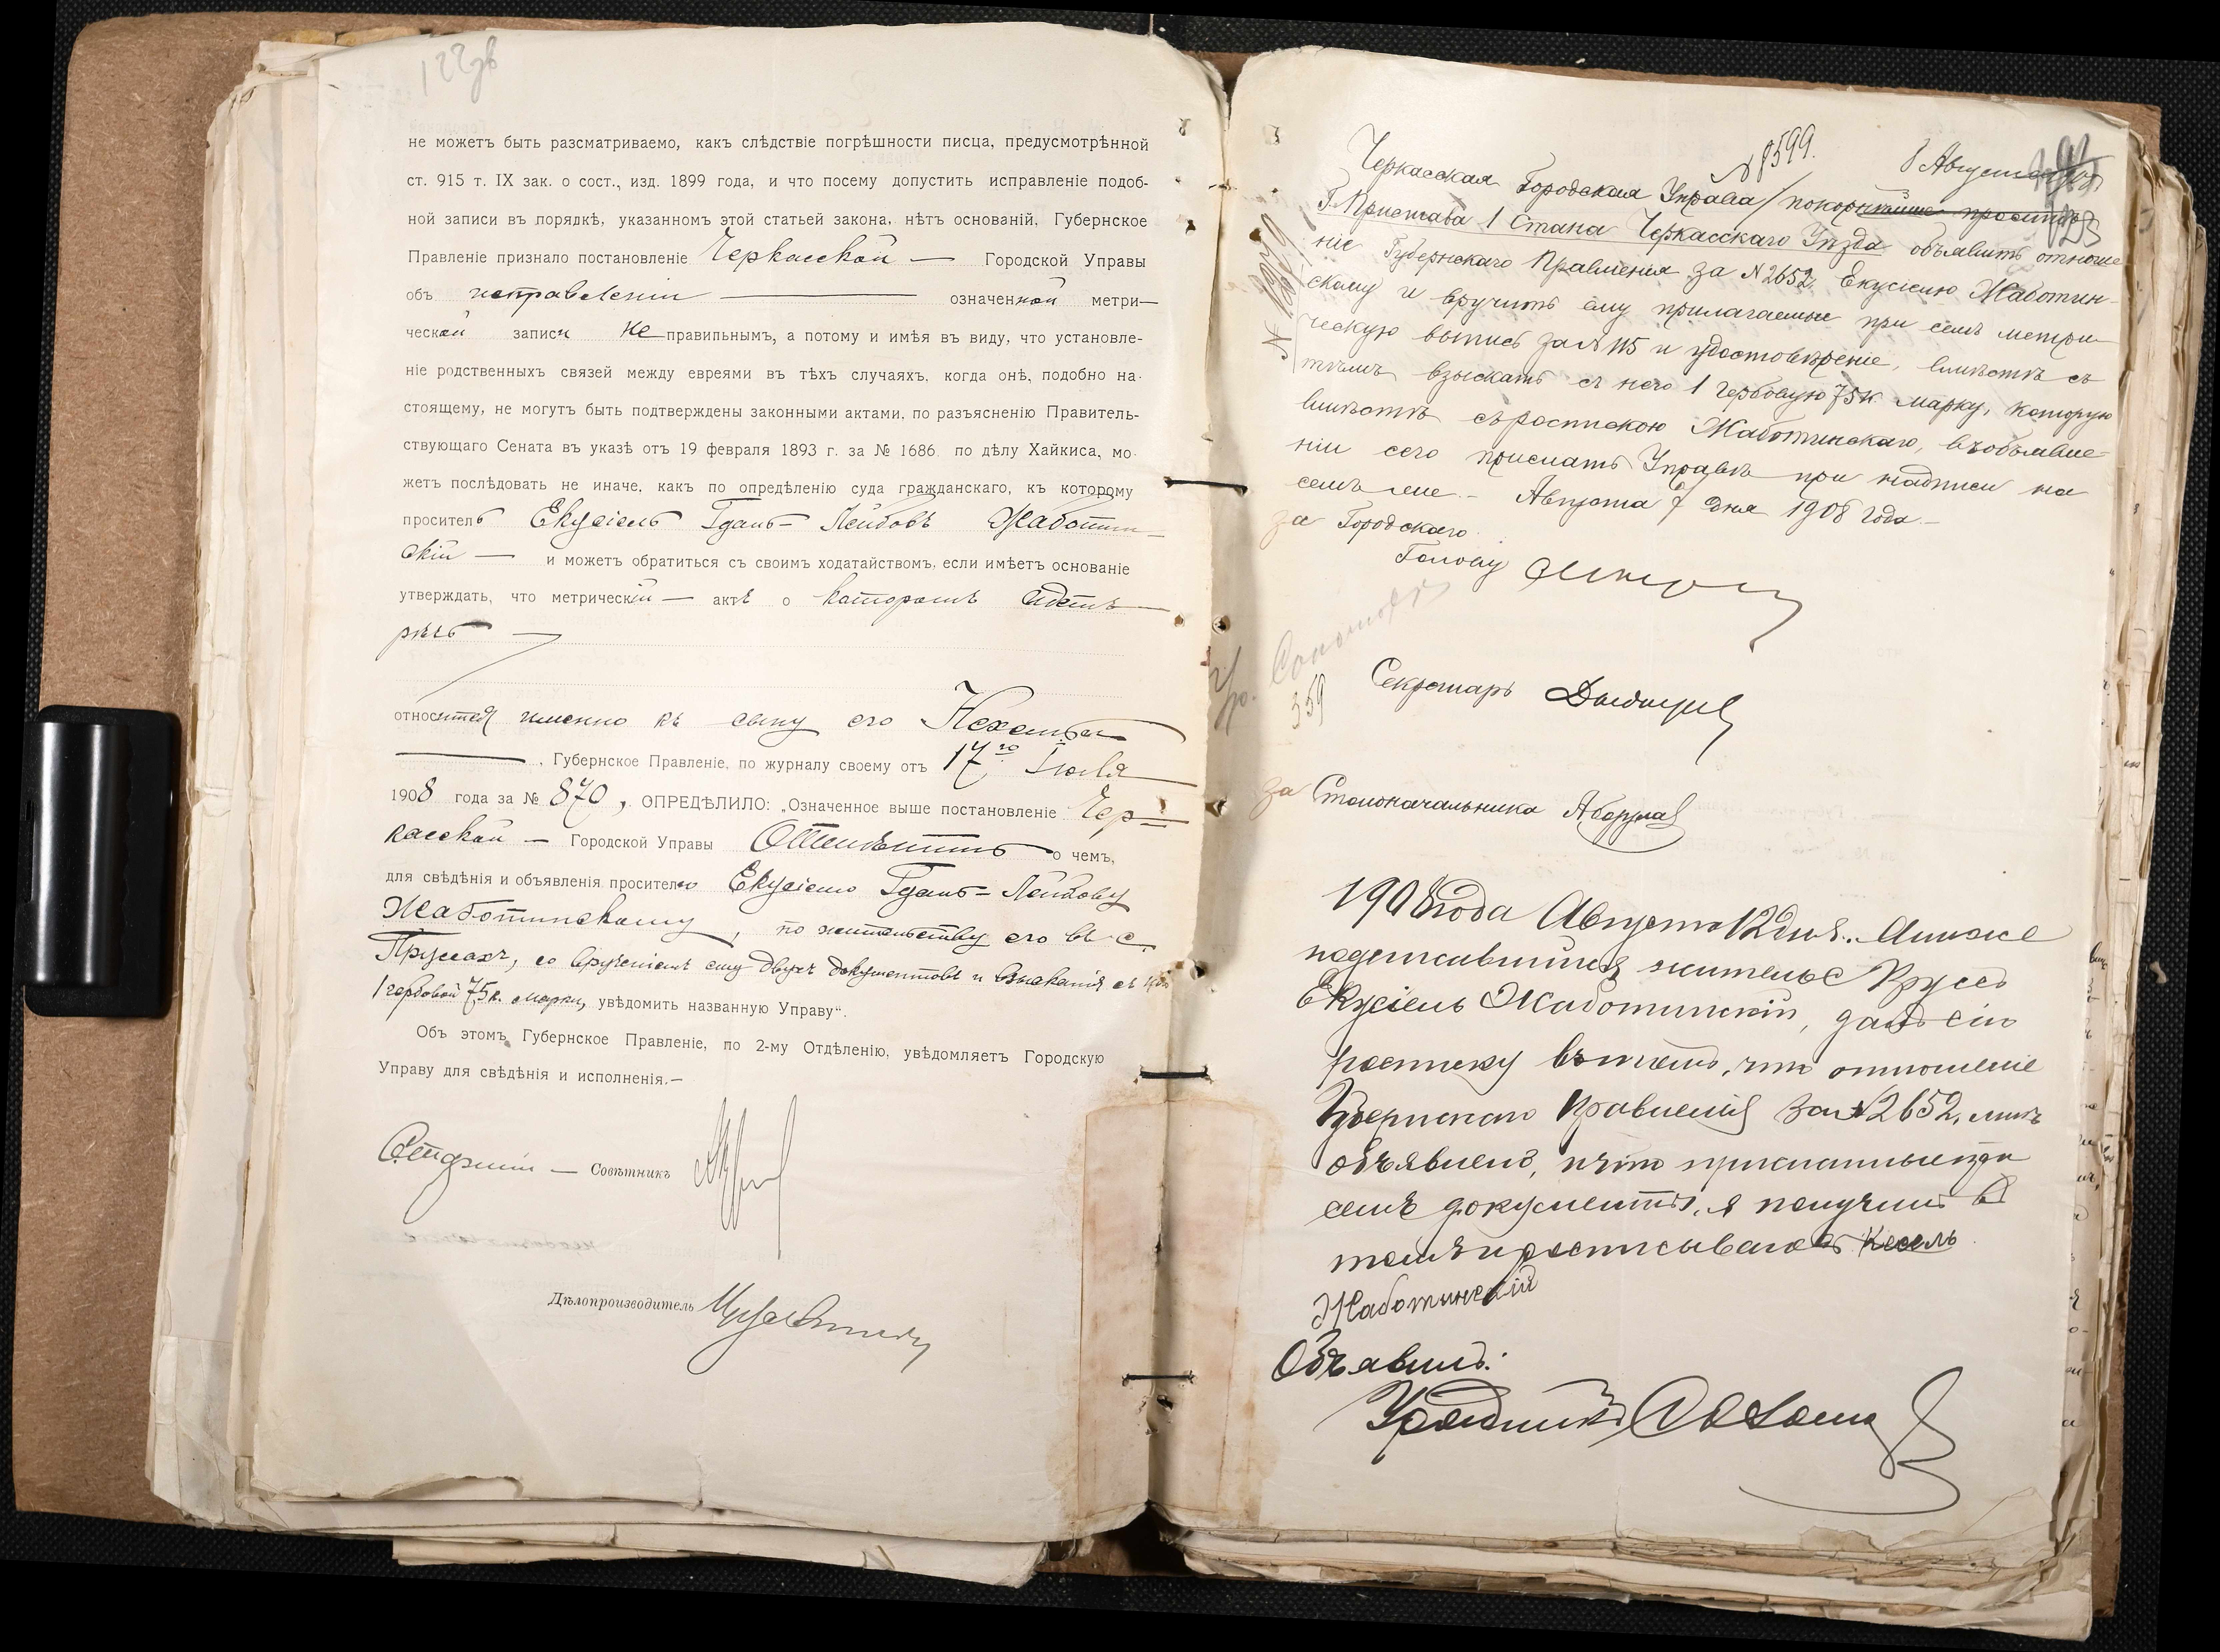 122об
не можетъ быть разсматриваемо, какъ слѣдствіе погрѣшности писца, предусмотрѣнной
ст. 915 т. IX зак. о сост., изд. 1899 года, и что посему допустить исправленіе подоб-
ной записи въ порядкѣ, указанномъ этой статьей закона, нѣтъ основаній, Губернское
Правленіе признало постановленіе Черкасской — Городской Управы
объ исправленіи — означенной метри—
ческой записи неправильнымъ, а потому и имѣя въ виду, что установле-
ніе родственныхъ связей между евреями въ тѣхъ случаяхъ, когда онѣ, подобно на-
стоящему, не могутъ быть подтверждены законными актами, по разъясненію Правитель-
ствующаго Сената въ указѣ отъ 19 февраля 1893 г. за № 1686 по дѣлу Хайкиса, мо-
жетъ послѣдовать не иначе, какъ по опредѣленію суда гражданскаго, къ которому
проситель Екусіель Гдаль-Лейбовъ Жаботин-
скій — и можетъ обратиться съ своимъ ходатайствомъ, если имѣетъ основаніе
утверждать, что метрическій — актъ о которомъ идетъ
рѣчь —
относится именно къ сыну его
—, Губернское Правленіе, по журналу своему отъ 17го Іюля
1908 года за № 870, ОПРЕДѢЛИЛО: „Означенное выше постановленіе Чер-
касской — Городской Управы Отмѣнить о чемъ,
для свѣдѣнія и объявленія просителю Екусіелю Гдаль-Лейбову
Жаботинскому, по жительству его въ с.
Пруссахъ, со врученіемъ ему двухъ документовъ и взысканія съ него
1 гербовой 75 к. марки, увѣдомить названную Управу“.
Объ этомъ Губернское Правленіе, по 2-му Отдѣленію, увѣдомляетъ Городскую
Управу для свѣдѣнія и исполненія.—
Старшій — Совѣтникъ
Дѣлопроизводитель
№ 8599. 8 Августа
123
Черкасская Городская Управа покорнѣйше проситъ
Г. Пристава 1 Стана Черкасскаго Уѣзда объявить отноше-
ніе Губернскаго Правленія за № 2652 Екусіелю Жаботин-
скому и вручить ему прилагаемые при семъ метри-
ческую выпись за № 115 и удостовѣреніе, вмѣстѣ съ
тѣмъ взыскать съ него 1 гербовую 75 к. марку, которую
вмѣстѣ съ роспискою Жаботинскаго, въ объявле-
ніи сего прислать Управѣ при надписи на
семъ же.— Августа 7 дня 1908 года.—
за Городского
Голову
359
Секретарь
за Столоначальника
1908 года Августа 12 дня. Я ниже
подписавшійся житель с Прусъ
Екусіель Жаботинскій, далъ сію
росписку въ томъ, что отношеніе
Губернскаго Правленія за № 2652, мнѣ
объявлено, и что присланные при
семъ документы, я получилъ в
томъ и росписываюсь Кесель
Жаботинскій
Объявилъ:
Урядникъ